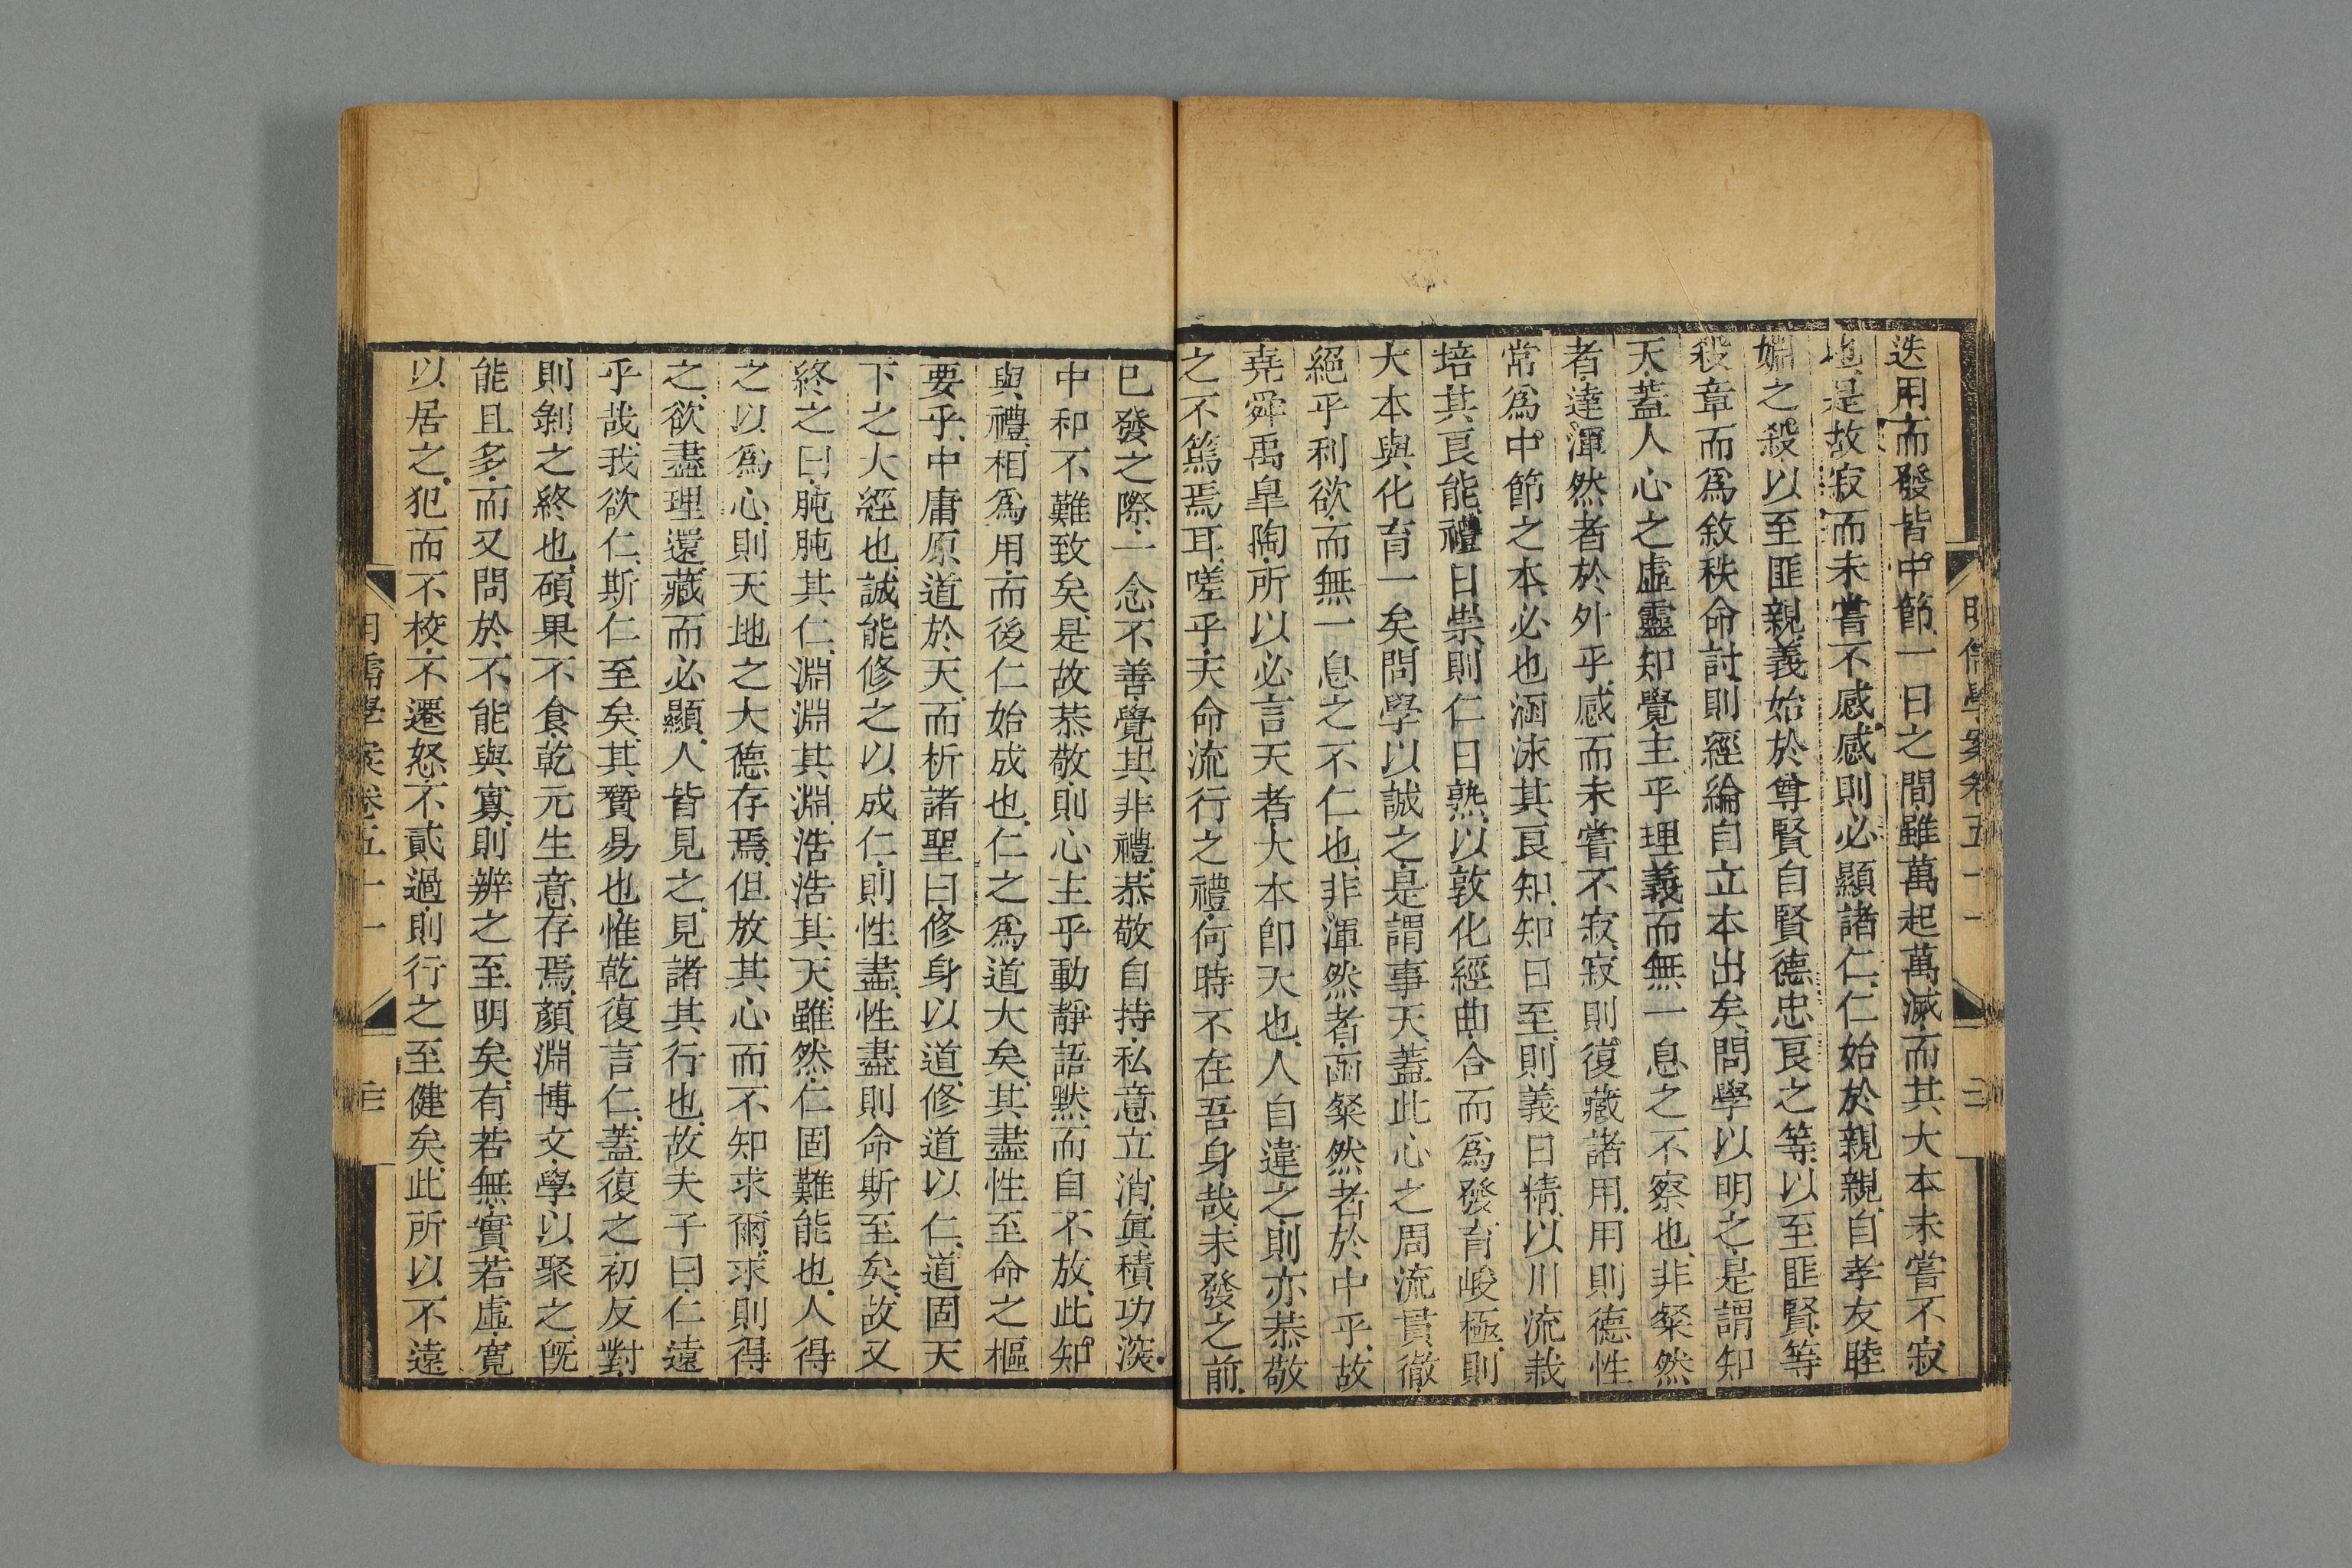 迭用而發皆中節一日之間雖萬起萬滅而其大本未嘗不寂
也是故寂而未嘗不感感則必顯諸仁仁始於親親自孝友睦
婣之殺以至匪親義始於尊賢自賢德忠良之等以至匪賢等
殺章而爲敘秩命討則經綸自立本出矣問學以明之是謂知
天蓋人心之虛靈知覺主乎理義而無一息之不察也非粲然
者達渾然者於外乎感而未嘗不寂寂則復藏諸用用則德性
常爲中節之本必也涵泳其良知知日至則義日精以川流栽
培其良能禮日崇則仁日熟以敦化經曲合而爲發育峻極則
大本與化育一矣問學以誠之是謂事天蓋此心之周流貫徹
絕乎利欲而無一息之不仁也非渾然者函粲然者於中乎故
堯舜禹臯陶所以必言天者大本卽天也人自違之則亦恭敬
之不篤焉耳嗟乎天命流行之禮何時不在吾身哉未發之前
已發之際一念不善覺其非禮恭敬自持私意立消眞積功深
中和不難致矣是故恭敬則心主乎動靜語默而自不放此知
與禮相爲用而後仁始成也仁之爲道大矣其盡性至命之樞
要乎中庸原道於天而析諸聖曰修身以道修道以仁道固天
下之大經也誠能修之以成仁則性盡性盡則命斯至矣故又
終之曰肫肫其仁淵淵其淵浩浩其天雖然仁固難能也人得
之以爲心則天地之大德存焉但放其心而不知求爾求則得
之欲盡理還藏而必顯人皆見之見諸其行也故夫子曰仁遠
乎哉我欲仁斯仁至矣其贊易也惟乾復言仁蓋復之初反對
則剝之終也碩果不食乾元生意存焉顏淵博文學以聚之旣
能且多而又問於不能與寡則辨之至明矣有若無實若虛寬
以居之犯而不校不遷怒不貳過則行之至健矣此所以不遠
明儒學案卷五十一
三